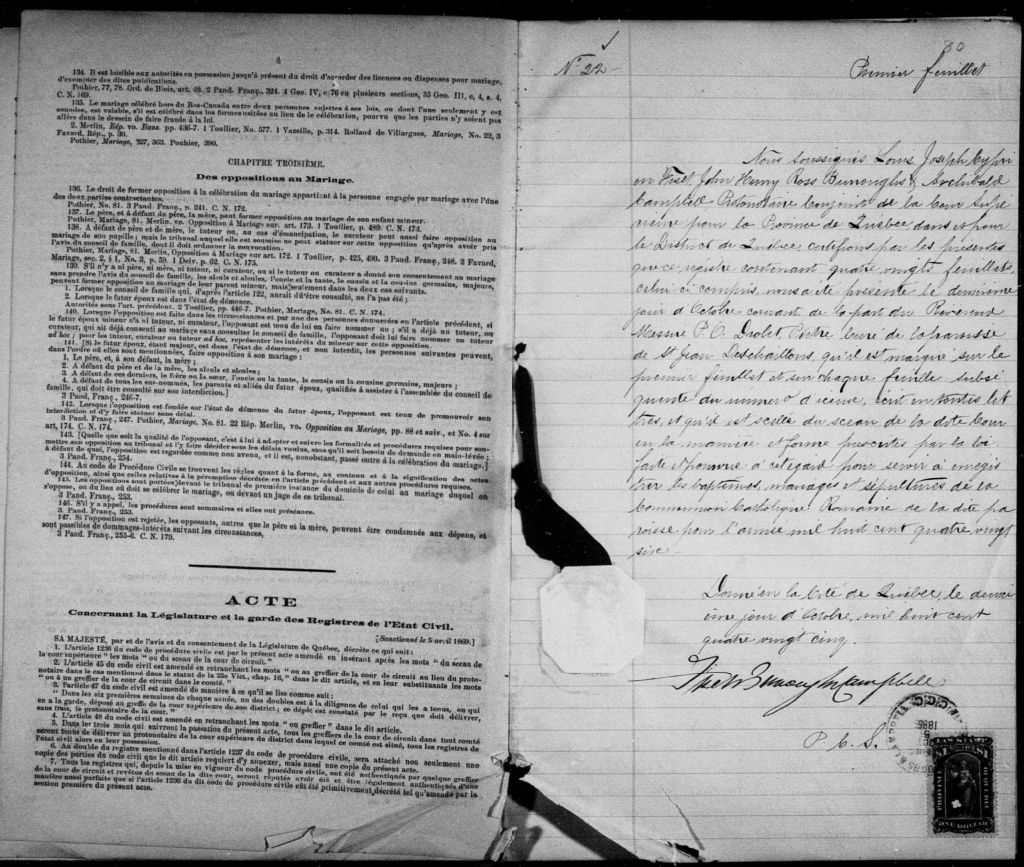 4
134. Il est loisible aux autorités en possession jusqu'à présent du droit d'accorder des licences ou dispenses pour mariage,
d'exempter des dites publications.
Pothier, 77, 78. Ord. de Blois, art. 40. 2 Pand. Franç., 324. 4 Geo. IV, c. 76 en plusieurs sections, 35 Geo. III, c, 4, s. 4,
C. N. 169.
135. Le mariage célébré hors du Bas-Canada entre deux personnes sujettes à ses lois, ou dont l'une seulement y est
soumise, est valable, s'il est célébré dans les formes usitées au lieu de la célébration, pourvu que les parties n'y soient pas
allées dans le dessein de faire fraude à la loi.
2. Merlin, Rép. vo. Bans. pp. 436-7. 1 Toullier, No. 577. 1 Vazeille, p. 314. Rolland de Villargues, Mariage, No. 22, 3
Favard, Rép., p. 30.
Pothier, Mariage, 327, 363. Pouhier, 390.
CHAPITRE TROISIÈME.
Des oppositions au Mariage.
136. Le droit de former opposition à la célébration du mariage appartient à la personne engagée par mariage avec l'une
des deux parties contractantes.
Pothier, No. 81. 3 Pand. Franç., p. 241. C. N. 172.
137. Le père, et à défaut du père, la mère, peut former opposition au mariage de son enfant mineur.
Pothier, Mariage, 81. Merlin, vo. Opposition à Mariage sur. art. 173. 1 Toullier, p. 489. C. N. 173.
138. A défaut de père et de mère, le tuteur ou, au cas d'émancipation, le curateur peut aussi faire opposition au
mariage de son pupille; mais le tribunal auquel elle est soumise ne peut statuer sur cette opposition qu'après avoir pris
l'avis du conseil de famille, dont il doit ordonner la convocation.
Pothier, Mariage, 81. Merlin, Opposition à Mariage sur art. 172. 1 Toullier, p. 425, 490. 3 Pand. Franç., 248. 2 Favard,
Mariage, sec. 2, § 1, No. 3, p. 59. 1 Delv. p. 62. C. N. 175.
139. S'il n'y a ni père, ni mère, ni tuteur, ni curateur, ou si le tuteur ou curateur a donné son consentement au mariage
sans prendre l'avis du conseil de famille, les aïeuls et aïeules, l'oncle et la tante, le cousin et la cousine germains, majeurs,
peuvent former opposition au mariage de leur parent mineur, mais seulement dans les deux cas suivants.
1. Lorsque le conseil de famille qui, d'après l'article 122, aurait dû être consulté, ne l'a pas été;
2. Lorsque le futur époux est dans l'état de démence.
Autorités sous l'art. précédent. 2 Toullier, pp. 446-7. Pothier, Mariage, No. 81. C. N. 174.
140. Lorsque l'opposition est faite dans les circonstances et par une des personnes énumérées en l'article précédent, si
le futur époux mineur n'a ni tuteur, ni curateur, l'opposant est tenu de lui en faire nommer un; s'il a déjà un tuteur, ou
curateur, qui ait déjà consenti au mariage sans consulter le conseil de famille, l'opposant doit lui faire nommer un tuteur
ad hoc; pour les tuteur, curateur ou tuteur ad hoc, représenter les intérêts du mineur sur cette opposition.
141. [Si le futur époux, étant majeur, est dans l'état de démence, et non interdit, les personnes suivantes peuvent,
dans l'ordre où elles sont mentionnées, faire opposition à son mariage:
1. Le père, et, à son défaut, la mère;
2. A défaut du père et de la mère, les aïeuls et aïeules;
3. A défaut de ces derniers, le frère ou la sœur, l'oncle ou la tante, le cousin ou la cousine germains, majeurs;
4. A défaut de tous les sus-nommés, les parents et alliés du futur époux, qualifiés à assister à l'assemblée du conseil de
famille, qui doit être consulté sur son interdiction.]
3 Pand. Franç., 246-7.
142. Lorsque l'opposition est fondée sur l'état de démence du futur époux, l'opposant est tenu de promouvoir son
interdiction et d'y faire statuer sans délai.
3 Pand. Franç., 247. Pothier, Mariage, No. 81. 22 Rép. Merlin, vo. Opposition au Mariage, pp. 88 et suiv., et No. 4 sur
art, 174. C. N. 174.
143. [Quelle que soit la qualité de l'opposant, c'est à lui à adopter et suivre les formalités et procédures requises pour sou-
mettre son opposition au tribunal et l'y faire décider sous les délais voulus, sans qu'il soit besoin de demande en main-levée;
à défaut de quoi, l'opposition est regardée comme non avenu, et il est, nonobstant, passé outre à la célébration du mariage.]
3 Pand. Franç., 254.
144. Au code de Procédure Civile se trouvent les règles quant à la forme, au contenu et à la signification des actes
d'opposition, ainsi que celles relatives à la péremption décrétée en l'article précédent et aux autres procédures requises.
145. Les oppositions sont portées devant le tribunal de première instance du domicile de celui au mariage duquel on
s'oppose, ou du lieu où doit se célébrer le mariage, ou devant un juge de ce tribunal.
3 Pand. Franç., 253.
146. S'il y a appel, les procédures sont sommaires et elles ont préséance.
3. Pand. Franç., 253.
147. Si l'opposition est rejetée, les opposants, autres que le père et la mère, peuvent être condamnés aux dépens, et
sont passibles de dommages-intérêts suivant les circonstances,
3 Pand. Franç., 255-6. C. N. 179.
ACTE
Concernant la Législature et la garde des Registres de l'Etat Civil.
[Sanctionné le 5 avril 1869.]
SA MAJESTÉ, par et de l'avis et du consentement de la Législature de Québec, décrète ce qui suit:
1. L'article 1236 du code de procédure civile est par le présent acte amendé en insérant après les mots "du sceau de
la cour supérieure" les mots "ou du sceau de la cour de circuit."
2. L'article 45 du code civil est amendé en retranchant les mots "ou au greffier de la cour de circuit au lieu du proto-
notaire dans le cas mentionné dans le statut de la 25e Vict., chap. 16," dans le dit article, et en leur substituants les mots
"ou à un greffier de la cour de circuit dans le comté."
3. L'article 47 du code civil est amendé de manière à ce qu'il se lise comme suit:
"Dans les six premières semaines de chaque année, un des doubles est à la diligence de celui qui les a tenus, ou qui
en a la garde, déposé au greffe de la cour supérieure de son district; ce dépôt est constaté par le reçu que doit délivrer,
sans frais, le protonotaire de la cour."
4. L'article 48 du code civil est amendé en retranchant les mots "ou greffier" dans le dit article.
5. Dans les trois mois qui suivront la passation du présent acte, tous les greffiers de la cour de circuit dans tout comté
seront tenus de délivrer au protonotaire de la cour supérieure du district dans lequel ce comté est situé, tous les registres de
l'état civil alors en leur possession.
6. Au double du registre mentionné dans l'article 1237 du code de procédure civile, sera attaché non seulement une
copie des parties du code civil que le dit article requiert d'y annexer, mais aussi une copie du présent acte.
7. Tous les registres qui, depuis la mise en vigueur du code de procédure civile, ont été authentiqués par quelque greffier
de la cour de circuit et revêtus du sceau de la dite cour, seront réputés avoir été et être légalement authentiqués d'une
manière aussi parfaite que si l'article 1236 du dit code de procédure civile eût été primitivement décrété tel qu'amendé par la
section première du présent acte.
80
No 22
Premier feuillet
Nous soussignés Louis Joseph Cypri
en Fiset, John Henry Ross Burroughs & Archibald
Campbell Protonotaire Conjoint de la Cour Supé
rieure pour la Province de Québec dans et pour
le District de Québec, certifions par les présentes
que ce registre contenant quatre vingts feuillets,
celui ci compris, nous a été présenté le deuxième
jour d'Octobre courant de la part du Révérend
Messire P. O. Drolet Prêtre Curé de la paroisse
de St Jean Deschaillons, qu'il est marqué sur le
premier feuillet et sur chaque feuille subsé
quente du numero d'icence, écrit en toutes let
tres, et qu'il est scellé du sceau de la dite Cour
en la manière et forme prescrites par la loi
faite et pourvue à cet égard pour servir à enregis
trer les baptêmes, mariages et sépultures de la
Communion Catholique Romaine de la dite pa
roisse pour l'année mil huit cent quatre vingt
six.
Donné en la Cité de Québec, le deuxi
ème jour d'Octobre, mil huit cent
quatre vingt cinq.
Fiset Burroughs Campbell
P. C. S.
1885
PROVINCE
DE QUEBEC
ONE DOLLAR